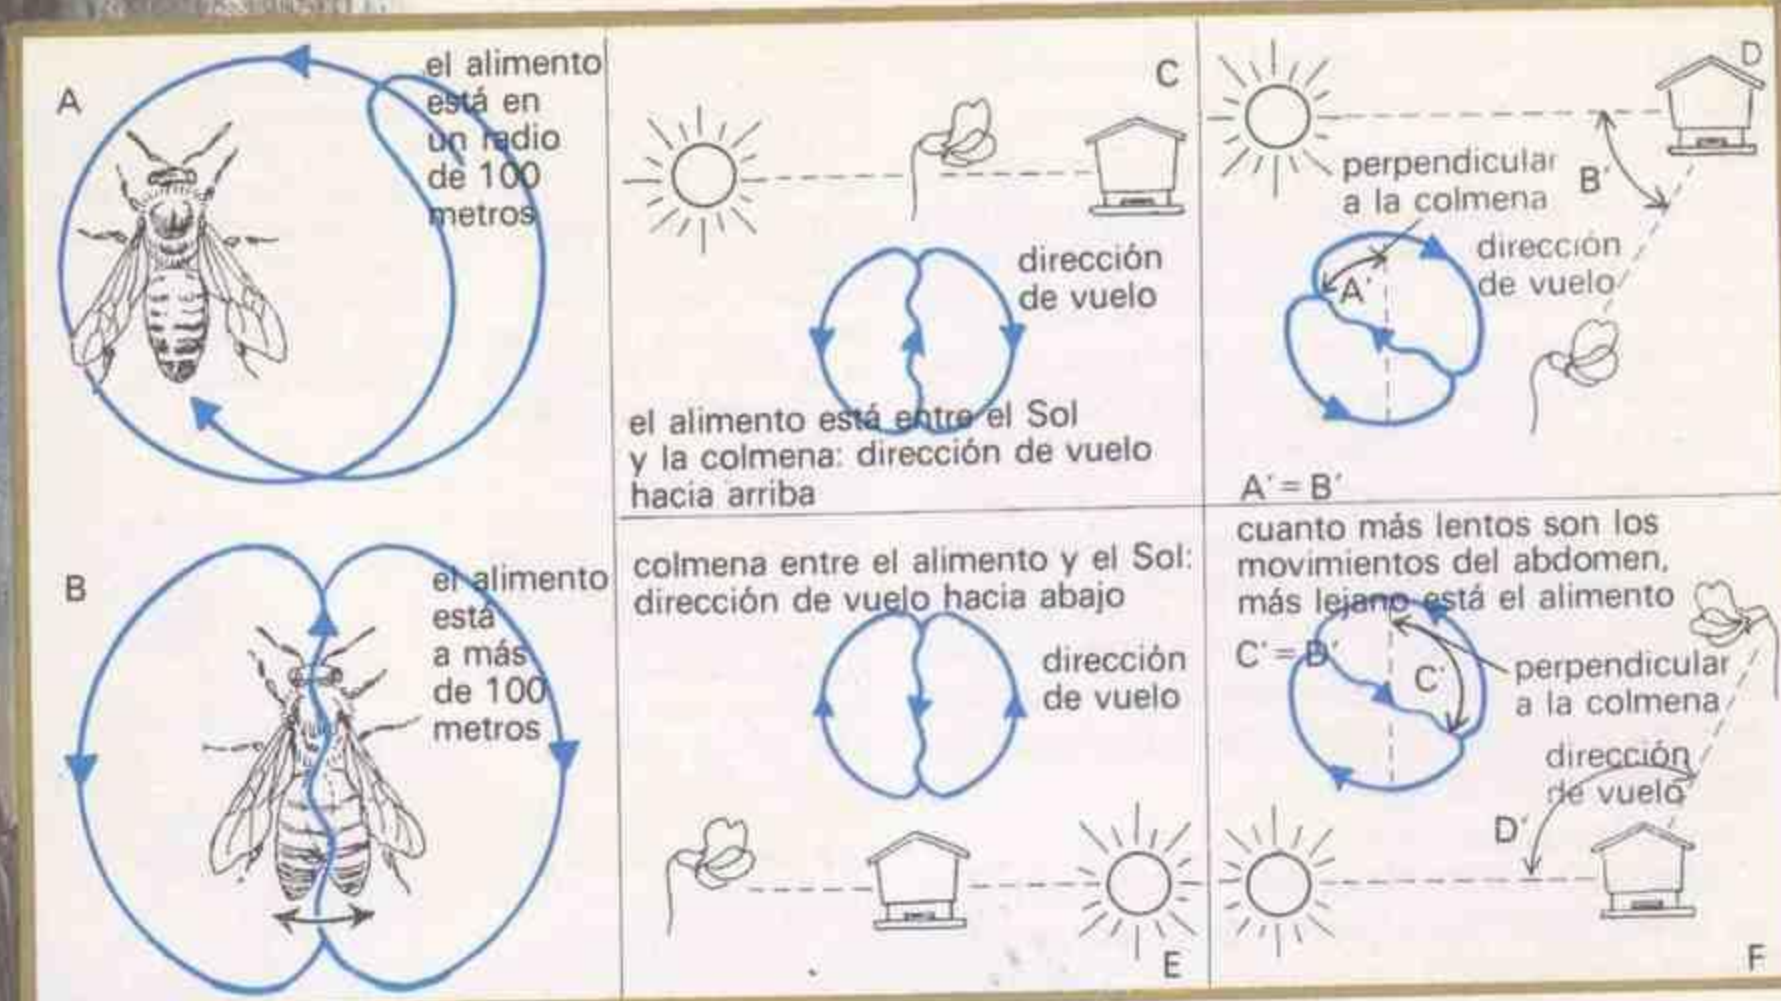 A
el alimento
está en
un radio
de 100
metros
B
el alimento
está
a más
de 100
metros
C
dirección
de vuelo
el alimento está entre el Sol
y la colmena: dirección de vuelo
hacia arriba
colmena entre el alimento y el Sol:
dirección de vuelo hacia abajo
dirección
de vuelo
E
D
perpendicular
a la colmena
B'
A'
dirección
de vuelo
A' = B'
cuanto más lentos son los
movimientos del abdomen,
más lejano está el alimento
C' = B'
C'
perpendicular
a la colmena
dirección
de vuelo
D'
F